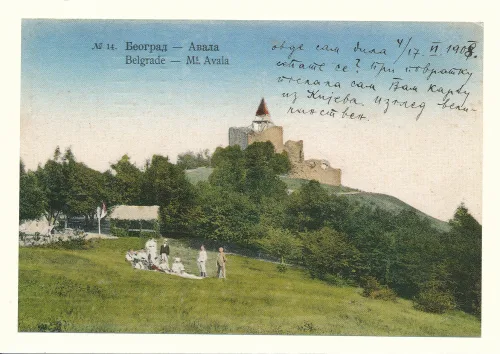 № 14. Београд — Авала
Belgrade — Mt. Avala
овде сам била 4/17. VI. 1908.
сте? При повратку
послала сам Вам карту
из Кијева. Изглед вели-
чанствен.